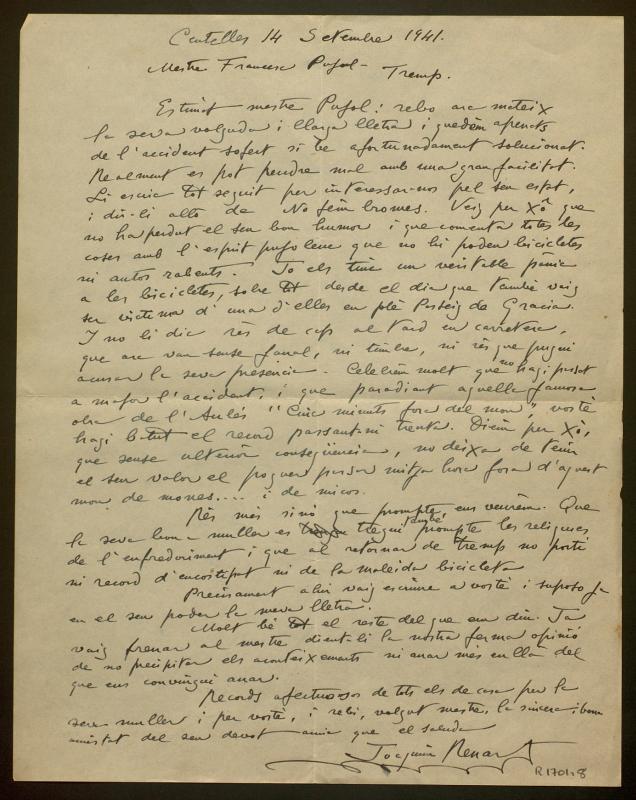 Centelles 14 Setembre 1941.
Mestre Francesc Pujol – Tremp.
Estimat mestre Pujol: rebo ara mateix
la seva volguda i llarga lletra i quedem apenats
de l'accident sofert si be afortunadament solucionat.
Realment es pot pendre mal amb una gran facilitat.
Li escric tot seguit per interessar-nos pel seu estat,
i dir-li allò de No fém bromes. Veig per xô que
no ha perdut el seu bon humor i que comenta totes les
coses amb l'esprit pujolenc que no hi poden bicicletes
ni autos rabents. Jo els tinc un veritable pànic
a les bicicletes, sobre tot desde el dia que també vaig
ser víctima d'una d'elles en plè Passeig de Gracia.
I no li dic rès de cap al tard en carretera,
que ara van sense fanal, ni timbre, ni rès que pugui
acusar la seva presencia. Celebrém molt que no hagi passat
a major l'accident, i que parodiant aquella famosa
obra de l'Aulés "Cinc minuts fora del mon", vostè
hagi batut el record passant-ni trenta. Diém per xô,
que sense ulterior conseqüencia, no deixa de tenir
el seu valor el poguer passar mitja hora fora d'aquest
mon de mones.... i de micos.
Rès mes sinó que prompte ens veurém. Que
la seva bona muller es tregui també prompte les reliquies
de l'enfredoriment i que al retornar de Tremp no porti
ni record d'encostipat ni de la maleida bicicleta
Precisament ahir vaig escriure a vostè i suposo ja
en el seu poder la meva lletra.
Molt bé tot el reste del que em diu. Ja
vaig frenar al mestre dient-li la nostra ferma opinió
de no precipitar els aconteixements ni anar més enllà del
que ens convingui anar.
Records afectuosos de tots els de casa per la
seva muller i per vostè, i rebi, volgut mestre, la sincera i bona
amistat del seu devot amic que el saluda
Joaquim Renart
R.1701.8